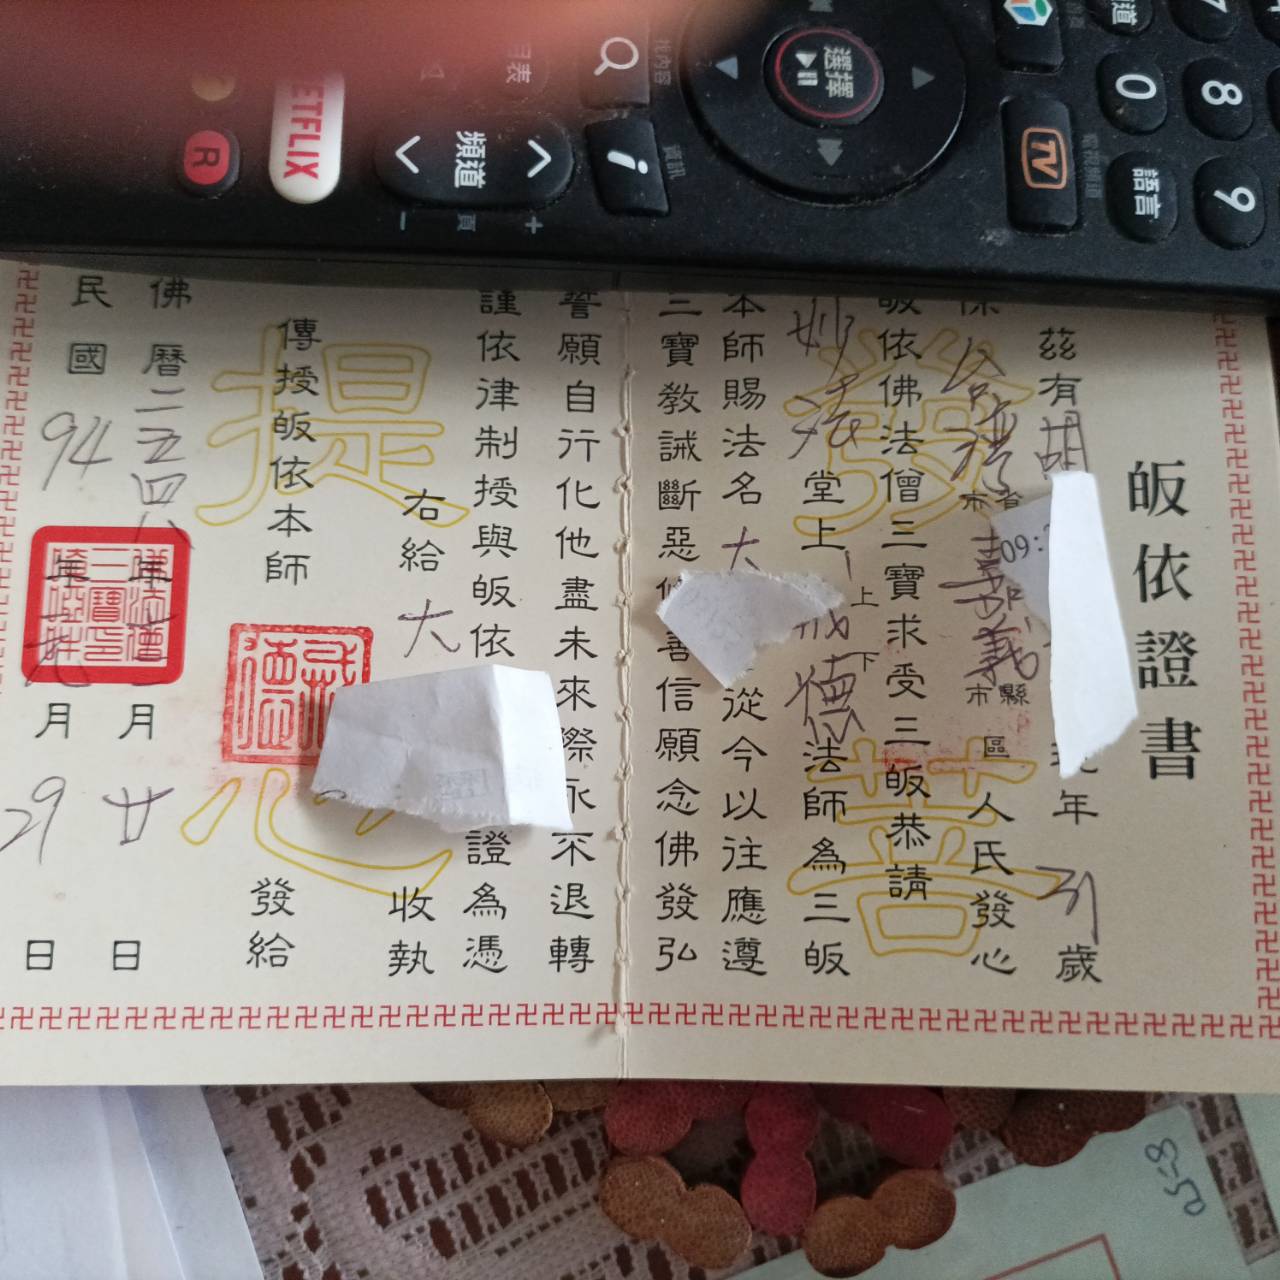 皈依證書
茲有胡 年31歲
係台灣省市嘉義縣市 區人民發心
皈依佛法僧三寶求受三皈恭請
堂上上下戒德法師為三皈
本師賜法名大 從今以往應遵
三寶教誡斷惡 善信願念佛發弘
誓願自行化他盡未來際永不退轉
謹依律制授與皈依 證為憑
右給 大 收執
傳授皈依本師 發給
佛曆二五四八年 月廿日
民國94年 月29日
發善
提心
選擇
頻道
頁
語言
NETFLIX
TV
R
i
0
8
9
+
-
09: